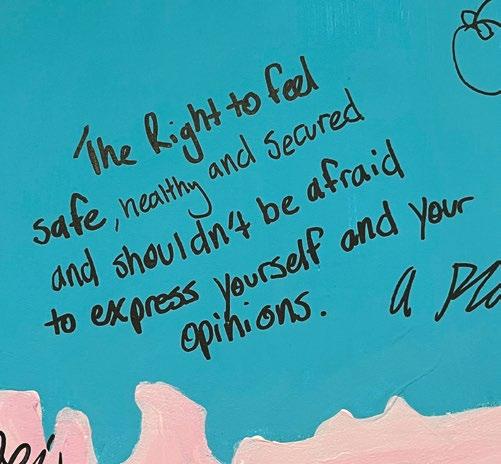 The Right to feel
safe, healthy and secured
and shouldn't be afraid
to express yourself and your
opinions.
a